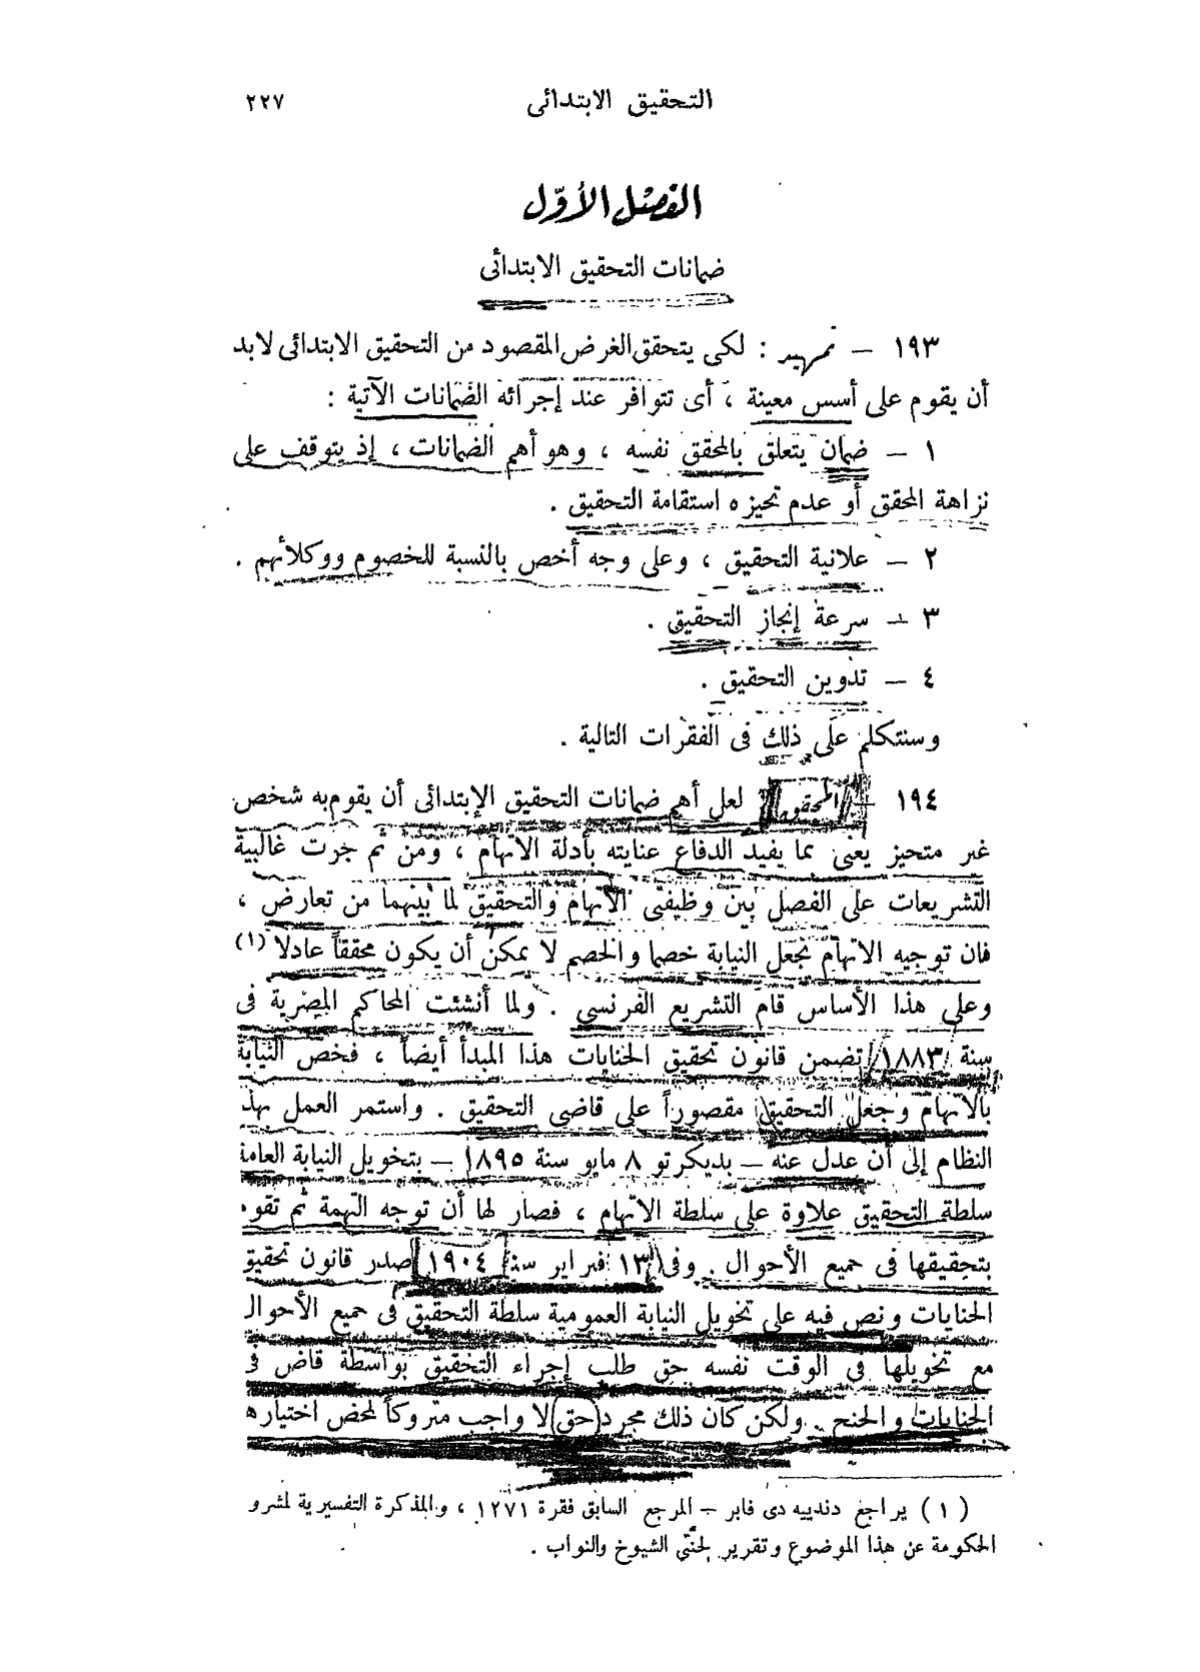 التحقيق الابتدائى ٢٢٧
الفصل الأوّل
ضمانات التحقيق الابتدائى
١٩٣ — تمهيد : لكى يتحقق الغرض المقصود من التحقيق الابتدائى لابد
أن يقوم على أسس معينة ، أى تتوافر عند إجرائه الضمانات الآتية :
١ — ضمان يتعلق بالمحقق نفسه ، وهو أهم الضمانات ، إذ يتوقف على
نزاهة المحقق أو عدم تحيزه استقامة التحقيق .
٢ — علانية التحقيق ، وعلى وجه أخص بالنسبة للخصوم ووكلائهم .
٣ — سرعة إنجاز التحقيق .
٤ — تدوين التحقيق .
وسنتكلم على ذلك فى الفقرات التالية .
١٩٤ — المحقق : لعل أهم ضمانات التحقيق الإبتدائى أن يقوم به شخص
غير متحيز يعنى بما يفيد الدفاع عنايته بأدلة الاتهام ، ومن ثم جرت غالبية
التشريعات على الفصل بين وظيفتى الاتهام والتحقيق لما بينهما من تعارض ،
فان توجيه الاتهام يجعل النيابة خصما والخصم لا يمكن أن يكون محققاً عادلا (١)
وعلى هذا الأساس قام التشريع الفرنسى . ولما أنشئت المحاكم المصرية فى
سنة ١٨٨٣ تضمن قانون تحقيق الجنايات هذا المبدأ أيضاً ، فخص النيابة
بالاتهام وجعل التحقيق مقصوراً على قاضى التحقيق . واستمر العمل بهذ
النظام إلى أن عدل عنه — بديكرتو ٨ مايو سنة ١٨٩٥ — بتخويل النيابة العامة
سلطة التحقيق علاوة على سلطة الاتهام ، فصار لها أن توجه التهمة ثم تقوم
بتحقيقها فى جميع الأحوال . وفى ١٣ فبراير سنة ١٩٠٤ صدر قانون تحقيق
الجنايات ونص فيه على تخويل النيابة العمومية سلطة التحقيق فى جميع الأحوال
مع تخويلها فى الوقت نفسه حق طلب إجراء التحقيق بواسطة قاض فى
الجنايات والجنح . ولكن كان ذلك مجرد (حق) لا واجب متروكاً لمحض اختيارها
(١) يراجع دندييه دى فابر — المرجع السابق فقرة ١٢٧١ ، والمذكرة التفسيرية لمشرو
الحكومة عن هذا الموضوع وتقرير لجنتى الشيوخ والنواب .